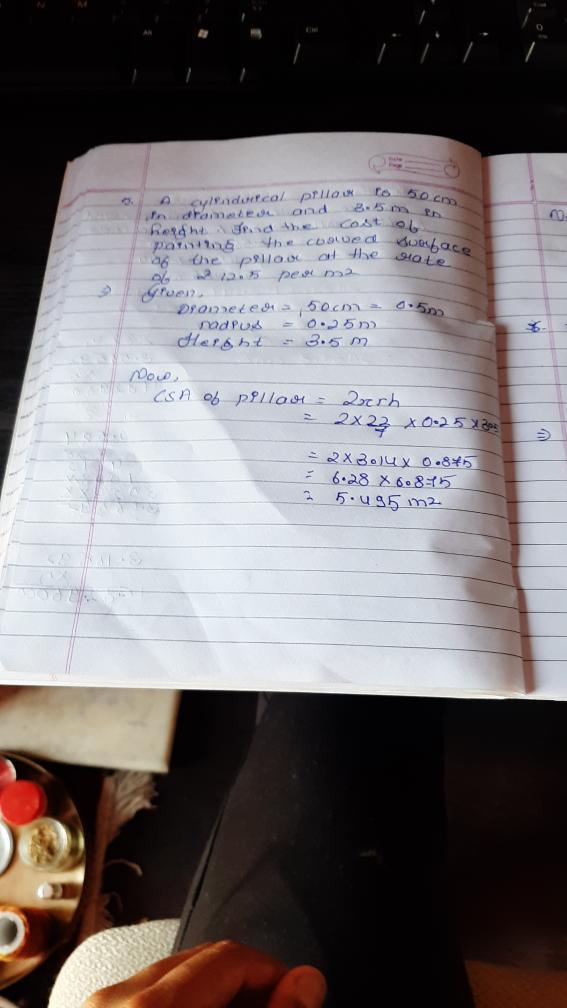 Q. A cylindrical pillar is 50cm
in diameter and 3.5m in
height. Find the cost of
painting the curved surface
of the pillar at the rate
of 212.5 per m2
⇒ Given,
Diameter = 50cm = 0.5m
radius = 0.25m
Height = 3.5 m
Now,
CSA of pillar = 2πrh
= 2 × 22/7 × 0.25 × 3.5
= 2 × 3.14 × 0.875
= 6.28 × 0.875
= 5.495 m2
⇒
Alt
Ctrl